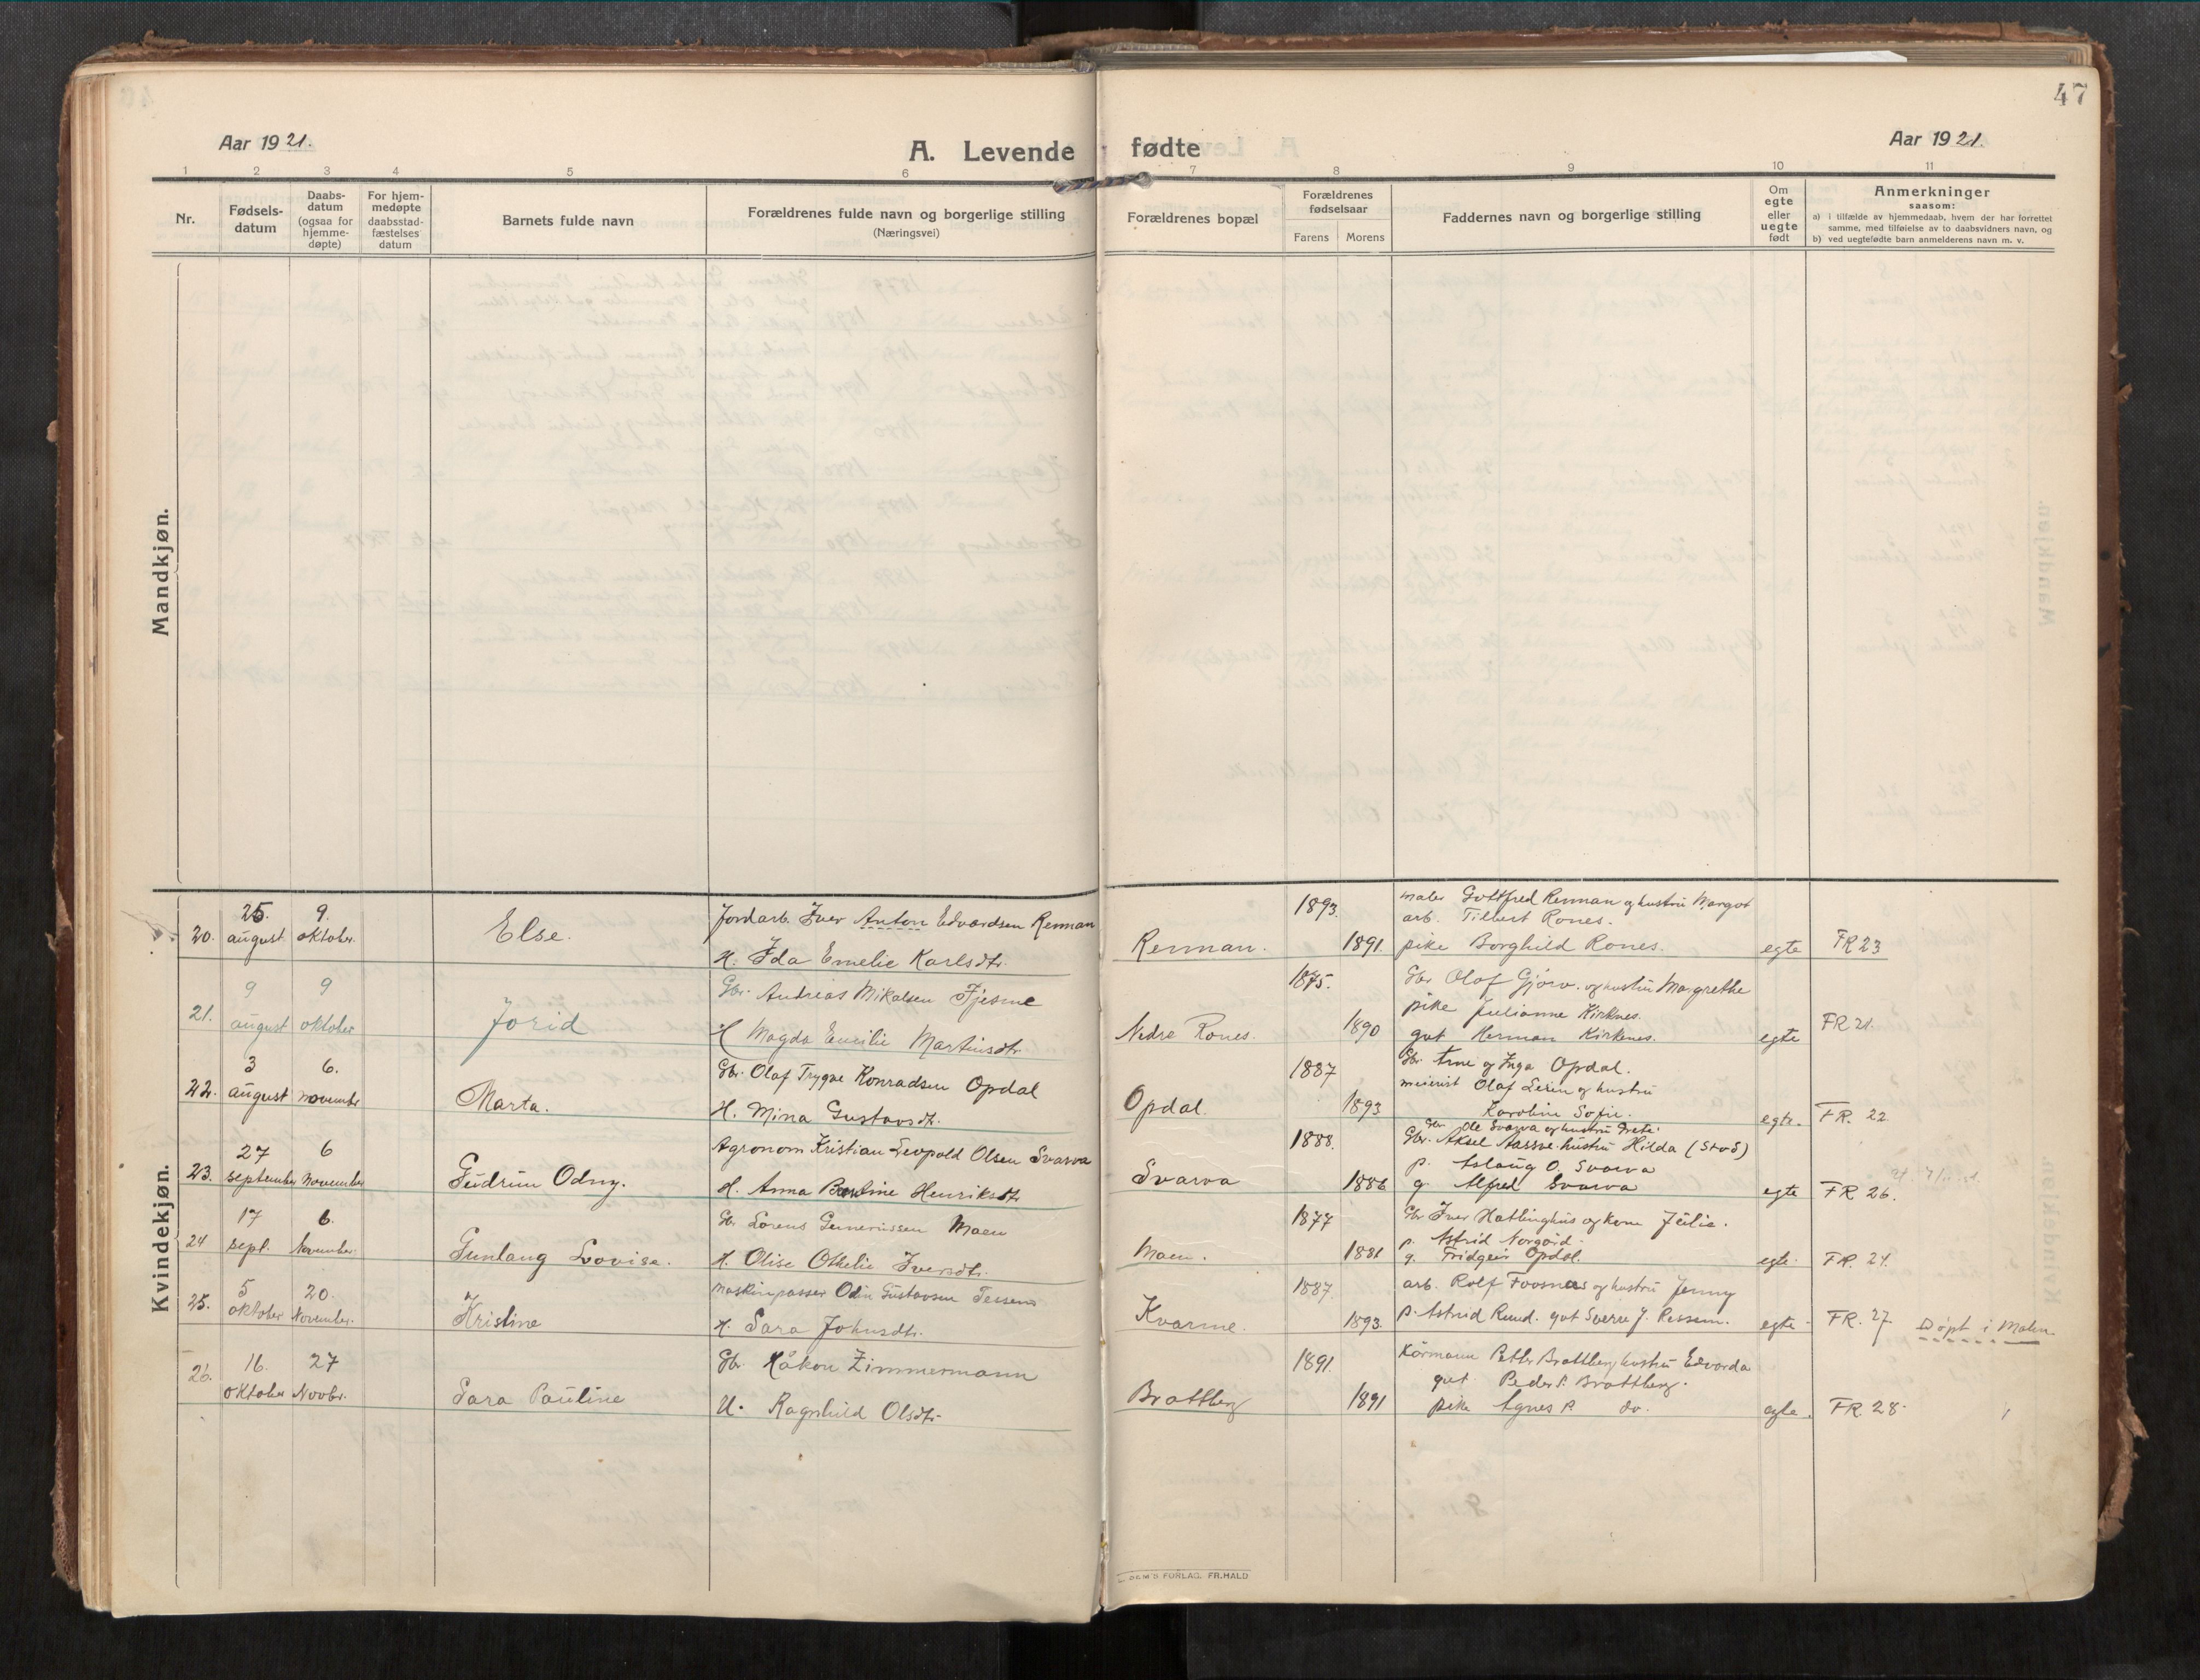 47
Aar 1921.
A. Levende fødte
Aar 1921.
1 2 3 4 5 6 7 8 9 10 11
Nr.
Fødsels-
datum
Daabs-
datum
(ogsaa for
hjemme-
døpte)
For hjem-
medøpte
daabsstad-
fæstelses
datum
Barnets fulde navn
Forældrenes fulde navn og borgerlige stilling
(Næringsvei)
Forældrenes bopæl
Forældrenes
fødselsaar
Farens Morens
Faddernes navn og borgerlige stilling
Om
egte
eller
uegte
født
Anmerkninger
saasom:
a) i tilfælde av hjemmedaab, hvem der har forrettet
samme, med tilføielse av to daabsvidners navn, og
b) ved uegtefødte barn anmelderens navn m. v.
Mandkjøn.
Kvindekjøn.
20. 25. august 9. oktober. Else.
Jordarb. Iver Anton Edvardsen Renman
H. Ida Emelie Karlsdtr.
Renman. 1893. 1891.
maler Gottfred Renman og hustru Margot
arb. Tilbert Rones.
pike Borghild Rones.
egte FR 23
21. 9 august 9 oktober Jorid
Gbr. Andreas Mikalsen Fjesme
H Magda Emilie Martinsdtr.
Nedre Rones. 1875. 1890
Gbr Olaf Gjørv. og hustru Margrethe
pike Julianne Kirknes.
gut Herman Kirkenes.
egte FR 21.
22. 3 august 6. november Marta.
Gbr. Olaf Trygve Konradsen Opdal
H. Mina Gustavsdtr.
Opdal. 1887 1893
Gbr. Arne og Inga Opdal.
meierist Olaf Leren og hustru
Karoline Sofie.
egte. FR. 22
23. 27 september 6 November Gudrun Odny.
Agronom Kristian Leopold Olsen Svarva
H. Anna Pauline Henriksdtr
Svarva 1888. 1886
Gbr Ole Svarva og hustru Grete.
Gbr. Aksel Aassve hustru Hilda (Stod)
p. Aslaug O. Svarva
g. Alfred Svarva
egte FR 26.
24 17 sept. 6. November. Gunlaug Lovise.
Gbr Lorens Maen
H. Olise Othelie Iversdtr.
Maen. 1877 1881
Gbr Iver Hatlinghus og kone Julie.
p. Astrid Norgård.
g. Fridgeir Opdal.
egte. FR. 24.
25. 5 oktober 20. November. Kristine
maskinpasser Odin Gustavsen Tessem
H. Sara Johnsdtr.
Kvarme. 1887. 1893.
arb. Rolf Foosnæs og hustru Jenny
p. Astrid Ruud. gut Sverre J. Ressem.
egte. FR. 27 Døpt i Malm.
26. 16. oktober 27 Novbr. Sara Pauline
Gbr. Håkon Zimmermann
H. Ragnhild Olsdtr.
Brattberg 1891. 1891
Kårmann Petter Brattberg hustru Edvarda
gut Peder P. Brattberg.
pike Agnes P. do.
egte. FR. 28.
FORLAG. FR.HALD